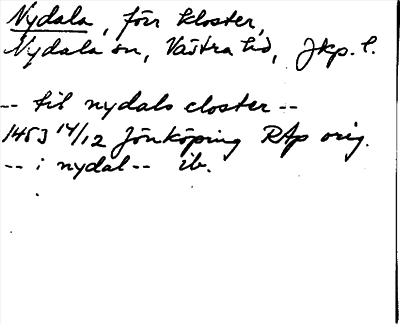 Nydala, förr kloster,
Nydala sn, Västra hd, Jkp. l.
-- til nydals closter --
1453 14/12 Jönköping RAp orig.
-- i nydal -- ib.